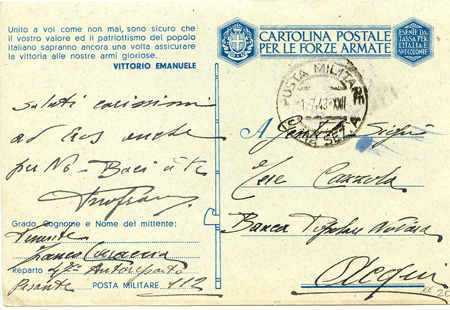 Unito a voi come non mai, sono sicuro che
il vostro valore ed il patriottismo del popolo
italiano sapranno ancora una volta assicurare
la vittoria alle nostre armi gloriose..
VITTORIO EMANUELE
CARTOLINA POSTALE
PER LE FORZE ARMATE
ESENTE DA
TASSA PER
L'ITALIA E
SUE COLONIE
POSTA MILITARE
SEZ. A
Saluti carissimi
ad Eros anche
per No - Baci a te
A
Cazzola
Banca Popolare Novara
Acqui
Grado Cognome e Nome del mittente:
Tenente
Franco
Reparto Autoreparto
Pesante POSTA MILITARE 112